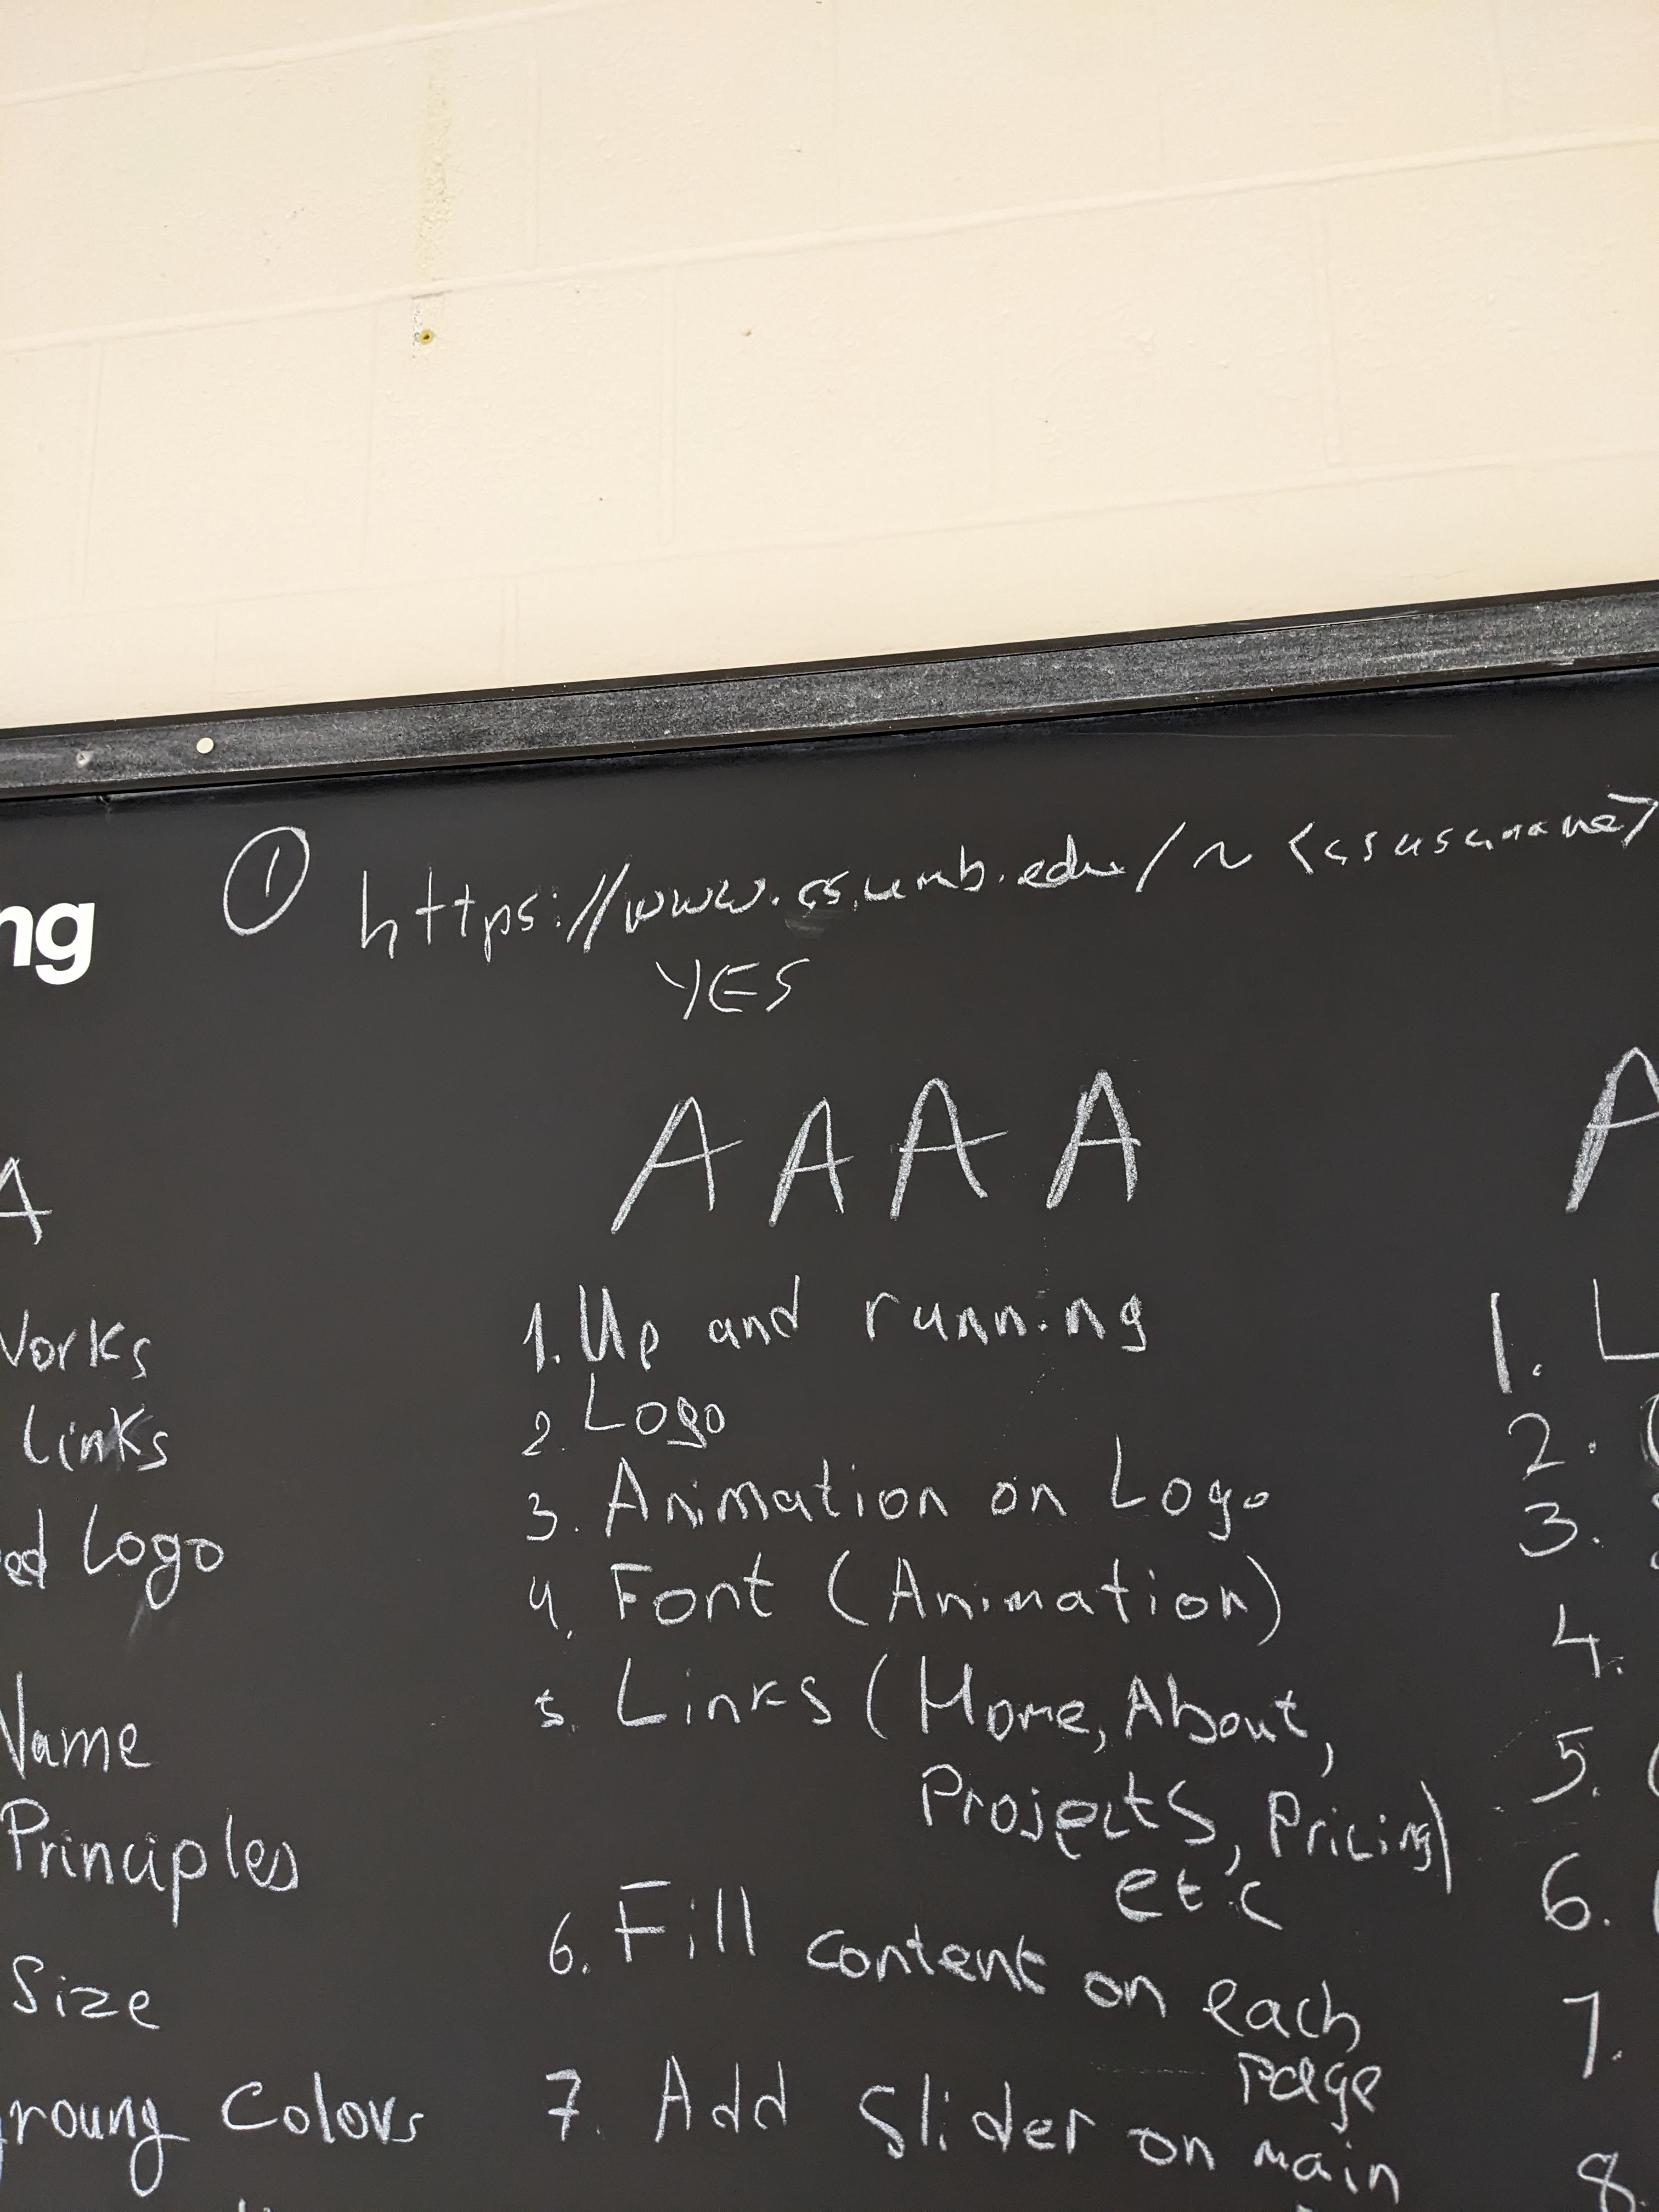 ① https://www.cs.umb.edu/~<csusername>
YES
ng
A
Works
Links
ed Logo
Name
Principles
Size
groung Colors
A A A A
1. Up and running
2. Logo
3. Animation on Logo
4. Font (Animation)
5. Links (Home, About,
Projects, Pricing)
etc
6. Fill content on each
page
7. Add Slider on main
A
1. L
2.
3.
4.
5.
6.
7.
8.